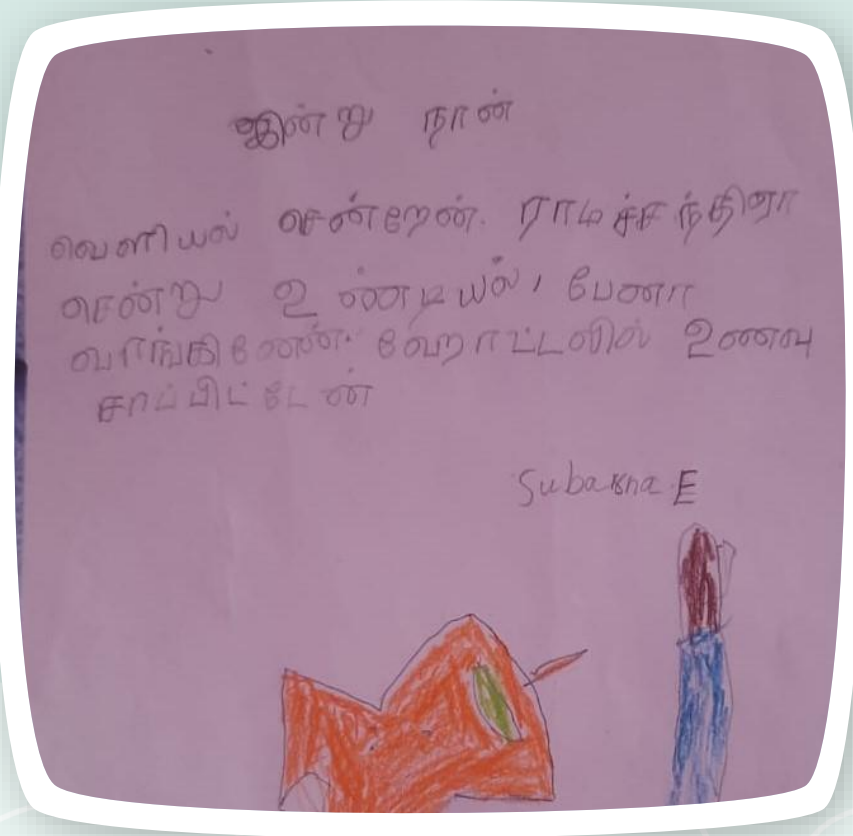 இன்று நான்
வெளியல் சென்றேன். ராமச்சந்திரா
சென்று உண்டியல், பேனா
வாங்கினேண். ஹோட்டலில் உணவு
சாப்பிட்டேன்
Subakna E